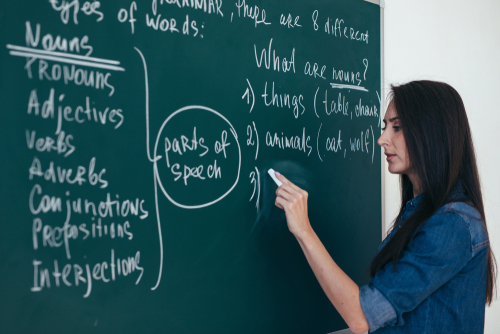 GRAMMAR, There are 8 different
types of words:
Nouns
Pronouns
Adjectives
Verbs
Adverbs
Conjunctions
Prepositions
Interjections
parts of
speech
What are nouns?
1) things (table, chair)
2) animals (cat, wolf)
3)